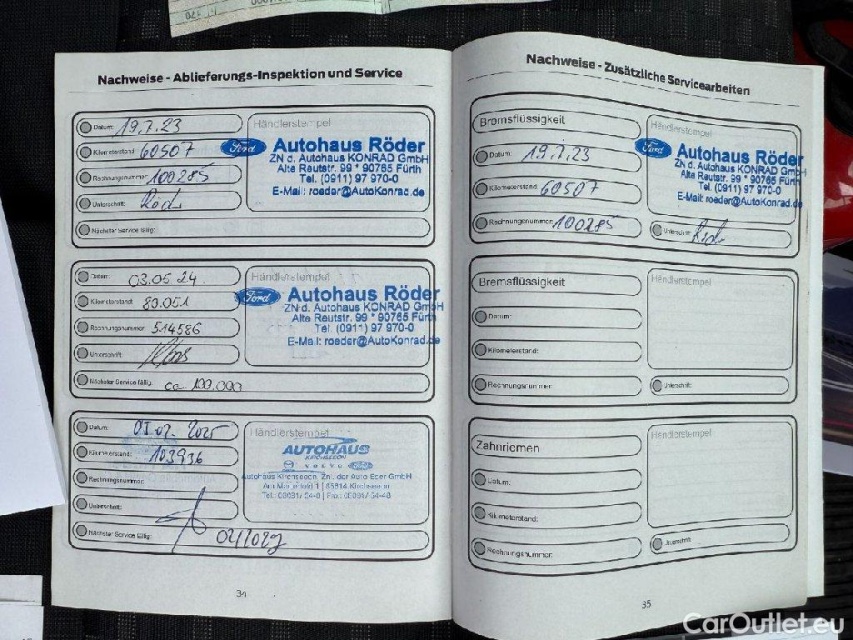 Nachweise - Ablieferungs-Inspektion und Service
Datum: 19.7.23
Kilometerstand: 60507
Rechnungsnummer: 100285
Unterschrift:
Nächster Service fällig:
Händlerstempel
Ford Autohaus Röder
ZN d. Autohaus KONRAD GmbH
Alte Reutstr. 99 * 90765 Fürth
Tel. (0911) 97 970-0
E-Mail: roeder@AutoKonrad.de
Datum: 03.05.24
Kilometerstand: 80.051
Rechnungsnummer: 514586
Unterschrift:
Nächster Service fällig: ca 100.000
Händlerstempel
Ford Autohaus Röder
ZN d. Autohaus KONRAD GmbH
Alte Reutstr. 99 * 90765 Fürth
Tel. (0911) 97 970-0
E-Mail: roeder@AutoKonrad.de
Datum: 2025
Kilometerstand: 103936
Rechnungsnummer:
Unterschrift:
Nächster Service fällig:
Händlerstempel
AUTOHAUS
KIRCHSEEON
VOLVO
Autohaus Kirchseeon, Znl. der Auto Eder GmbH
34
Nachweise - Zusätzliche Servicearbeiten
Bremsflüssigkeit
Datum: 19.7.23
Kilometerstand: 60507
Rechnungsnummer: 100285
Händlerstempel
Ford Autohaus Röder
ZN d. Autohaus KONRAD GmbH
Alte Reutstr. 99 * 90765 Fürth
Tel. (0911) 97 970-0
E-Mail: roeder@AutoKonrad.de
Unterschrift:
Bremsflüssigkeit
Datum:
Kilometerstand:
Rechnungsnummer:
Händlerstempel
Unterschrift:
Zahnriemen
Datum:
Kilometerstand:
Rechnungsnummer:
Händlerstempel
Unterschrift:
35
CarOutlet.eu